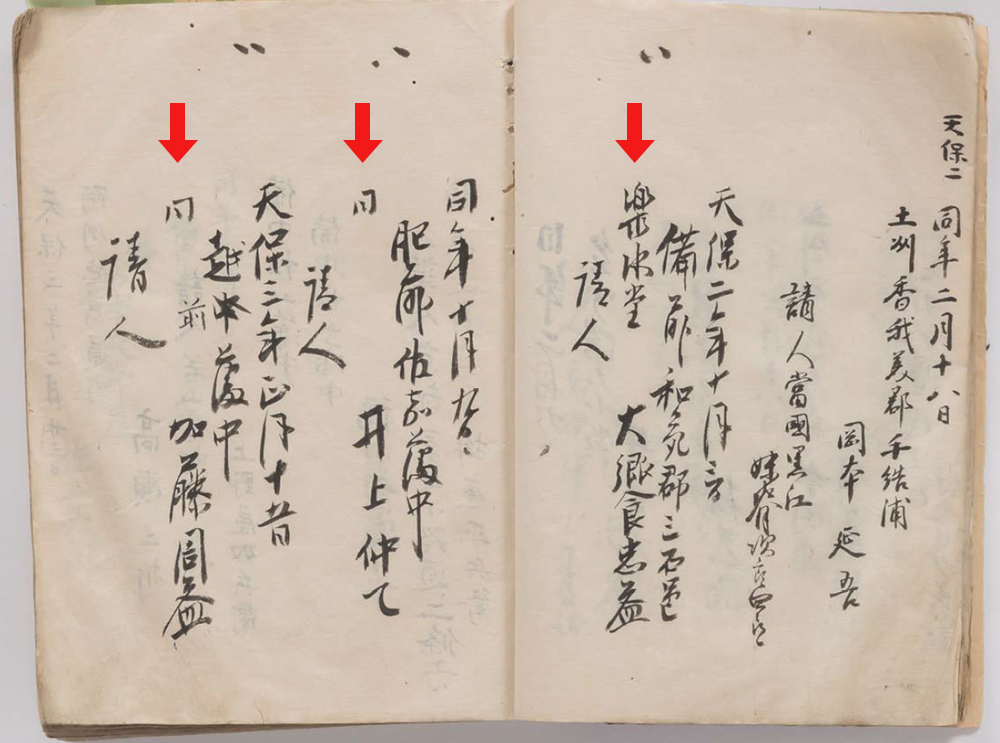 天保二
同年二月十八日
土州香我美郡手結浦
岡本延吾
請人當國黒江
妹背
天保二年十月
備前和気郡三石邑
堂 大饗忠益
請人
同年十月九日
肥前佐嘉藩中
同 井上仲
請人
天保三年正月十
越中前藩中
同 加藤周益
請人